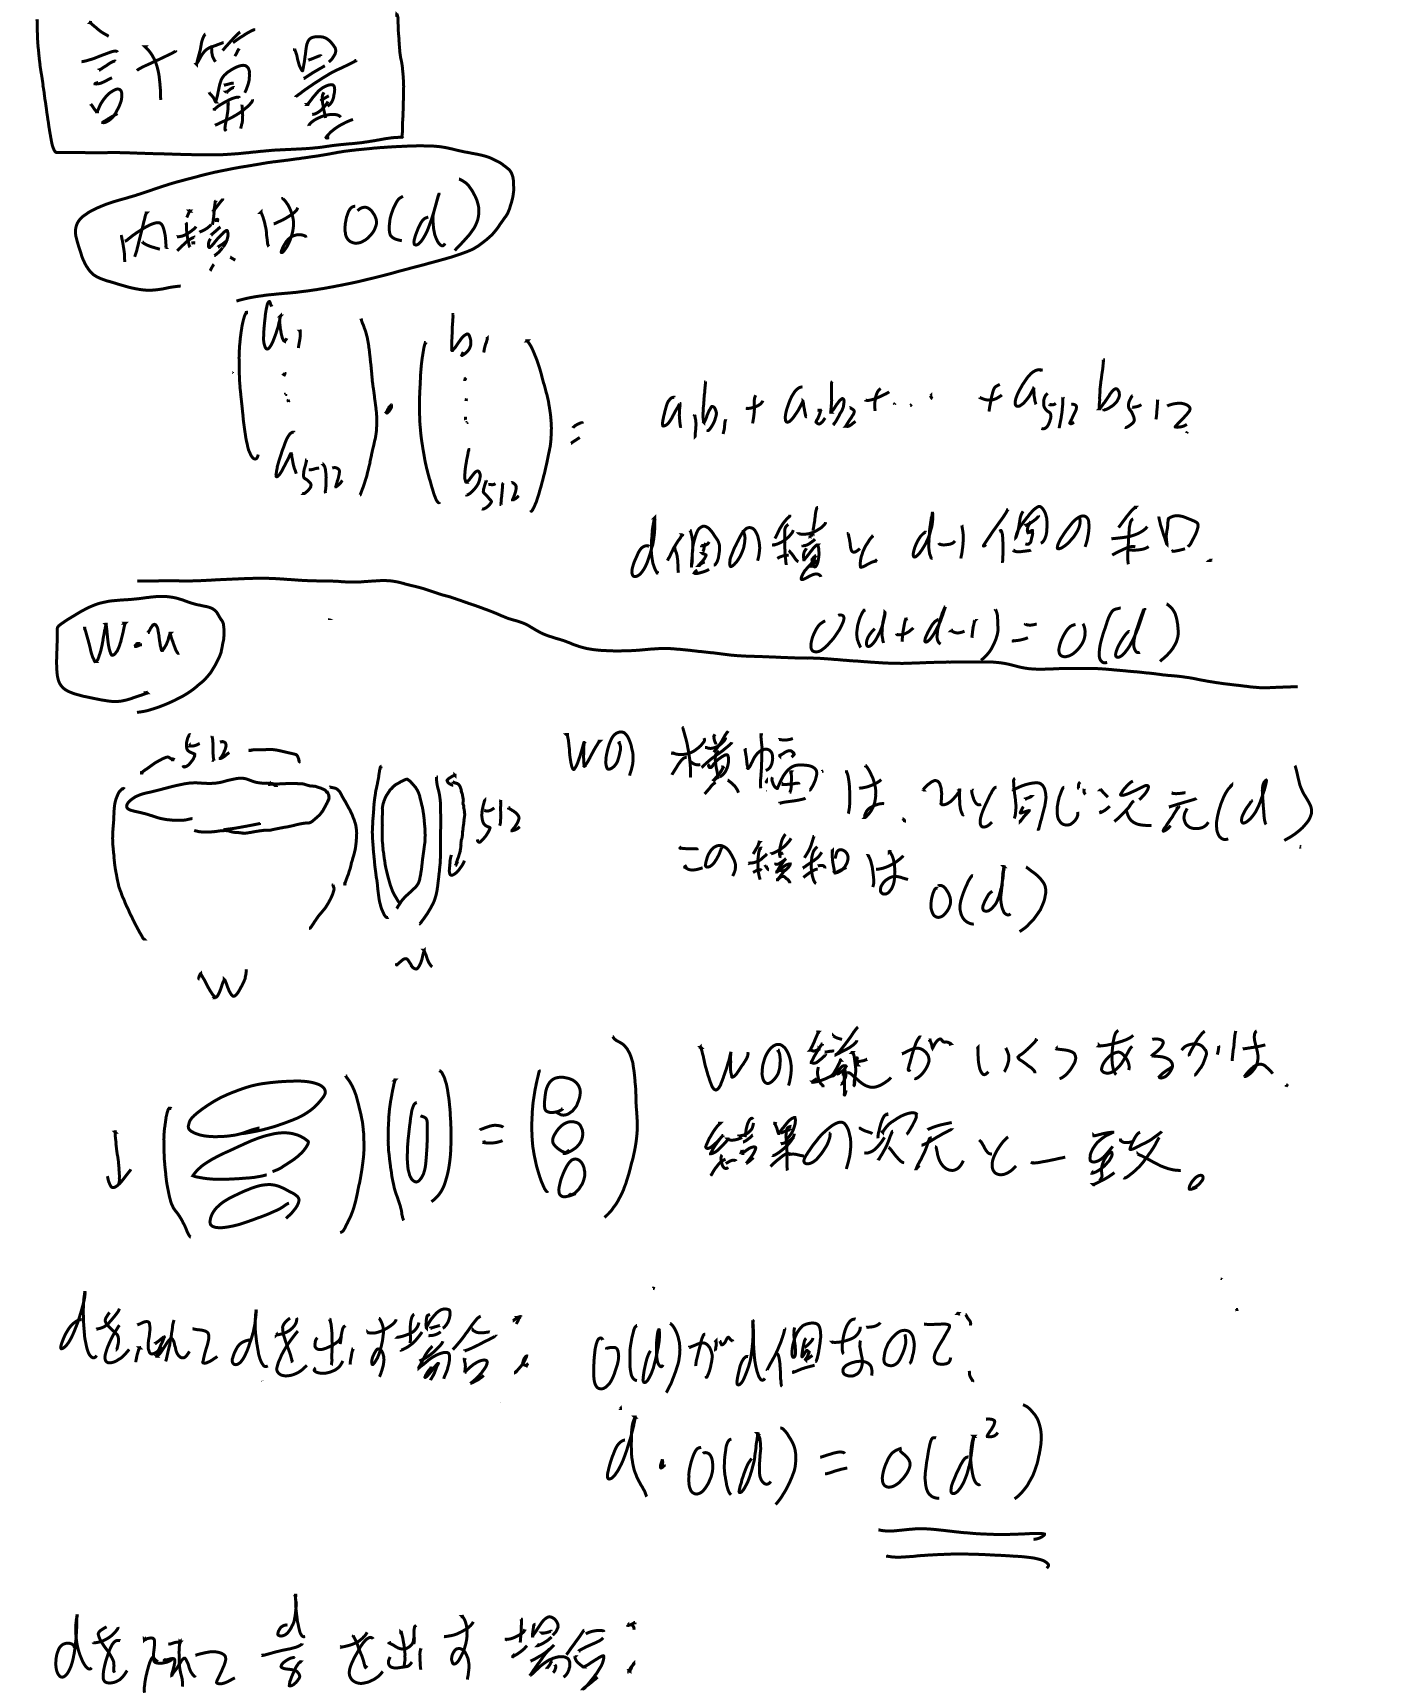 計算量
内積は O(d)
(a₁ ⋮ a₅₁₂)・(b₁ ⋮ b₅₁₂) = a₁b₁ + a₂b₂ + … + a₅₁₂ b₅₁₂
d個の積と d-1個の和.
O(d+d-1) = O(d)
W・u
512
Wの横幅は、uと同じ次元(d)
512
この積和は O(d)
W u
↓ ( ) ( ) = ( )
Wの縦がいくつあるかは、
結果の次元と一致。
dを入れてdを出す場合: O(d)がd個なので、
d・O(d) = O(d²)
dを入れて d/8 を出す場合: